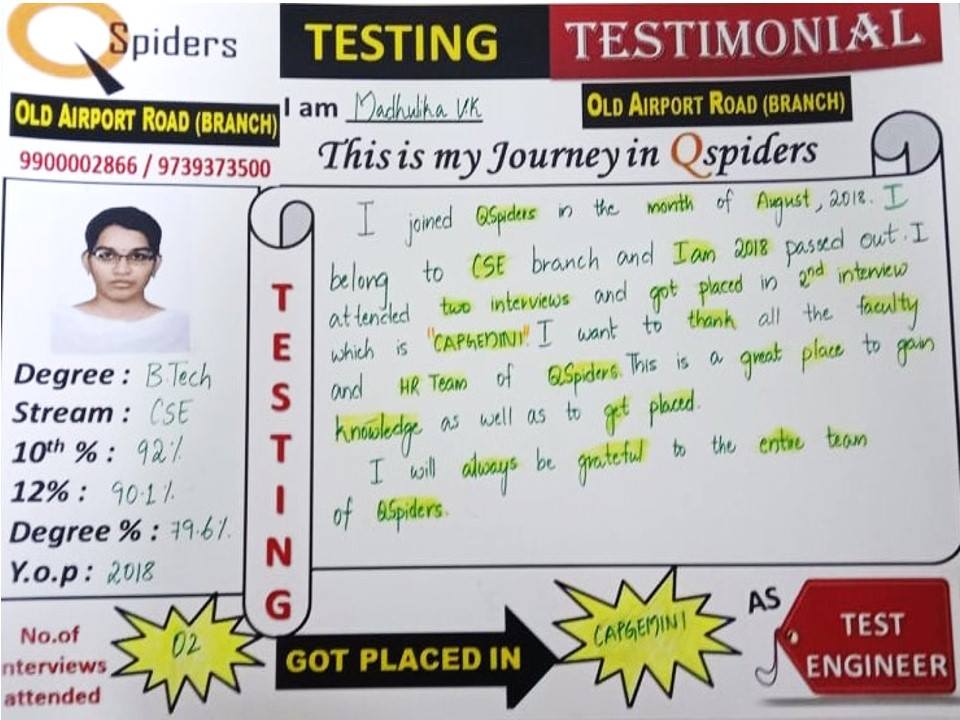 QSpiders
TESTING
TESTIMONIAL
OLD AIRPORT ROAD (BRANCH)
9900002866 / 9739373500
I am Madhulika V.K
OLD AIRPORT ROAD (BRANCH)
This is my Journey in Qspiders
I joined QSpiders in the month of August, 2018. I
belong to CSE branch and I am 2018 passed out. I
attended two interviews and got placed in 2nd interview
which is "CAPGEMINI". I want to thank all the faculty
and HR Team of QSpiders. This is a great place to gain
knowledge as well as to get placed.
I will always be grateful to the entire team
of QSpiders.
Degree : B.Tech
Stream : CSE
10th % : 92%
12% : 90.1%
Degree % : 79.6%
Y.o.p : 2018
TESTING
No.of
nterviews
attended
02
GOT PLACED IN
CAPGEMINI
AS
TEST
ENGINEER